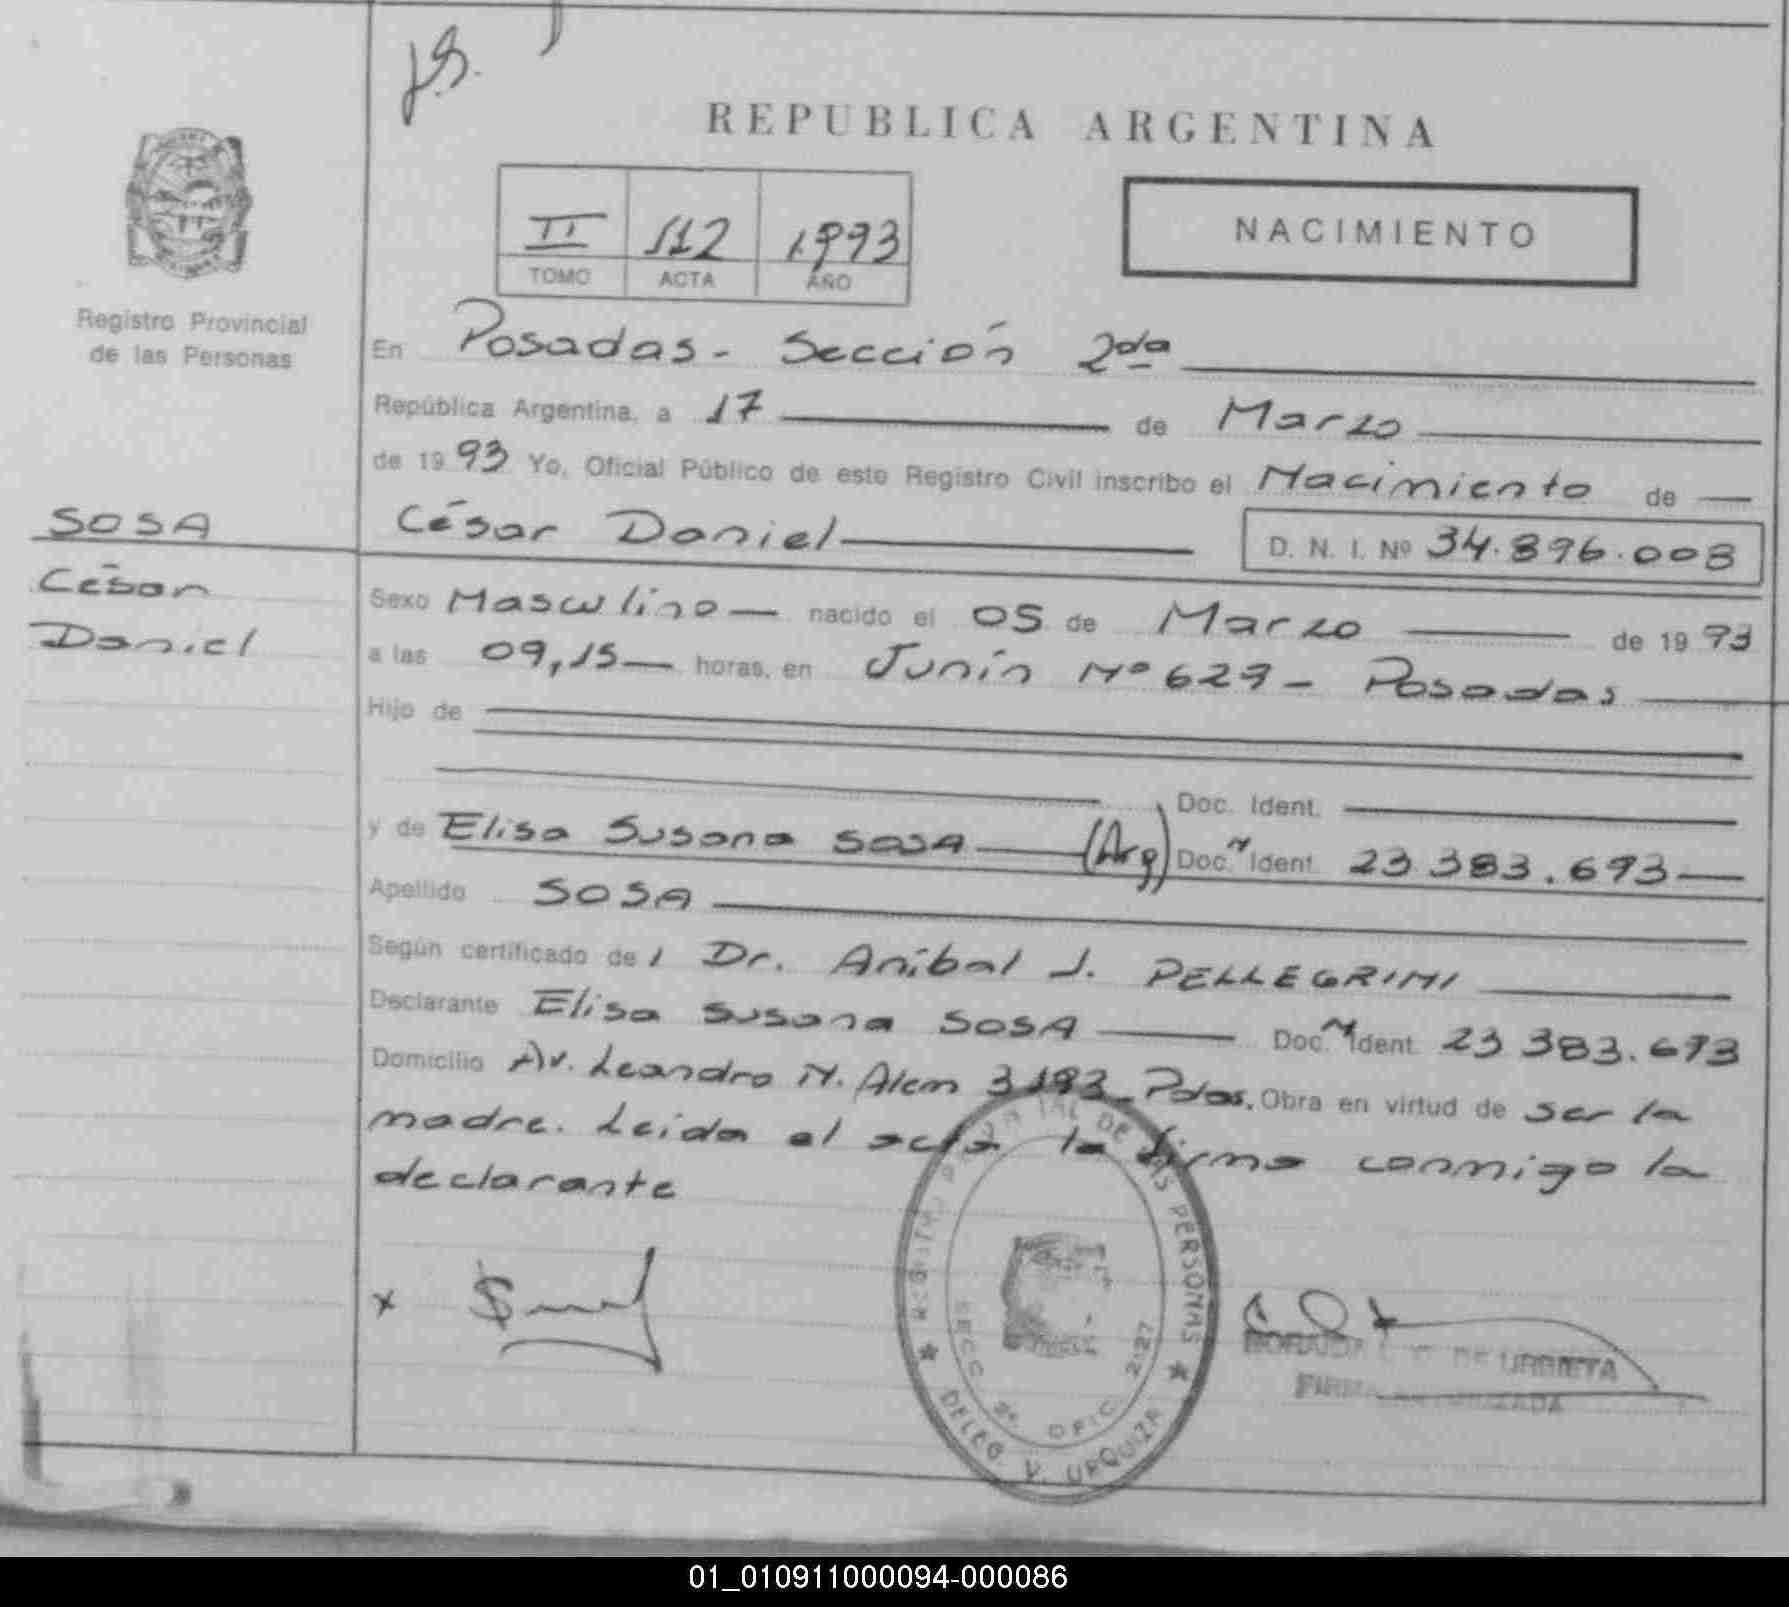 J.S.
REPUBLICA ARGENTINA
II 112 1993
TOMO ACTA AÑO
NACIMIENTO
Registro Provincial
de las Personas
En Posadas - Sección 2da
República Argentina, a 17 de Marzo
de 1993 Yo, Oficial Público de este Registro Civil inscribo el Nacimiento de
SOSA
César
Daniel
César Daniel D. N. I. Nº 34.896.008
Sexo Masculino nacido el 05 de Marzo de 1993
a las 09,15 horas, en Junín Nº 629 - Posadas
Hijo de
Doc. Ident.
y de Elisa Susana SOSA (Arg) Doc. Ident. 23 383.693
Apellido SOSA
Según certificado de l Dr. Aníbal J. PELLEGRINI
Declarante Elisa Susana SOSA Doc. Ident. 23 383.693
Domicilio Av. Leandro N. Alem 3193 - Pdas. Obra en virtud de ser la
madre. Leida el acta la firma conmigo la
declarante
x
REGISTRO PROVINCIAL DE LAS PERSONAS
SECC 2ª OFIC 2127
DELEG. V. URQUIZA
DE URRIETA
FIRMA AUTORIZADA
01_010911000094-000086